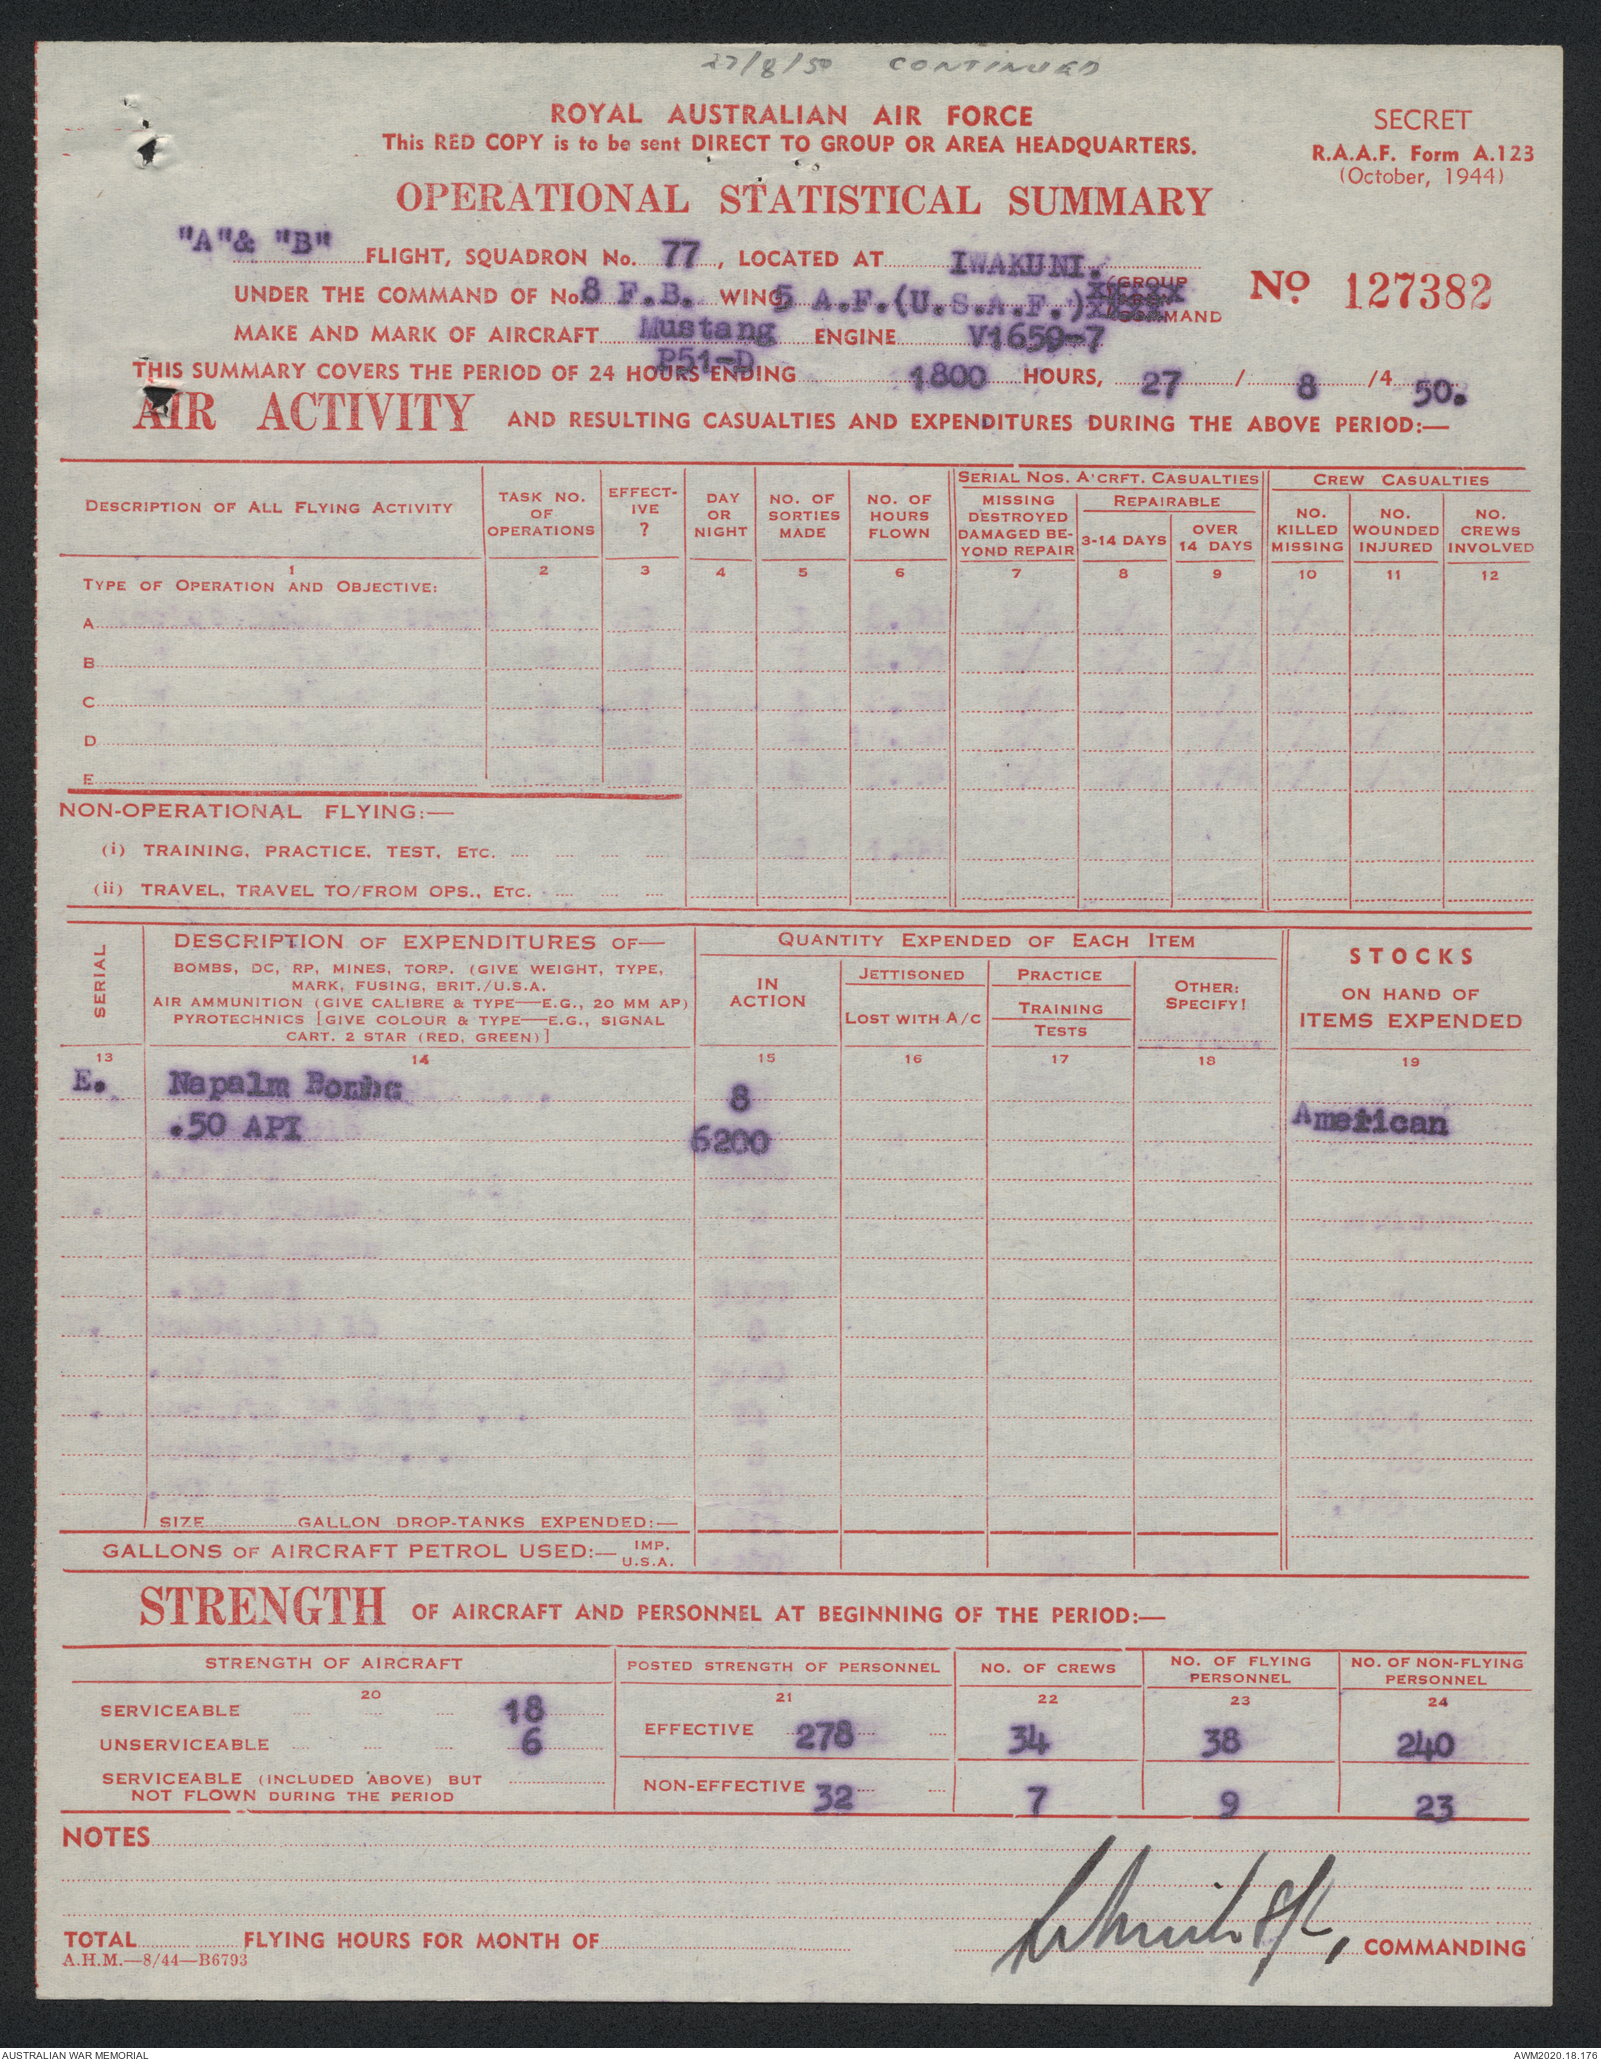 27/8/50 CONTINUED
ROYAL AUSTRALIAN AIR FORCE
This RED COPY is to be sent DIRECT TO GROUP OR AREA HEADQUARTERS.
SECRET
R.A.A.F. Form A.123
(October, 1944)
OPERATIONAL STATISTICAL SUMMARY
"A"& "B" FLIGHT, SQUADRON No. 77, LOCATED AT IWAKUNI.
UNDER THE COMMAND OF No. 8 F.B. WING, 5 A.F.(U.S.A.F.) GROUP
COMMAND
No. 127382
MAKE AND MARK OF AIRCRAFT Mustang ENGINE V1650-7
P51-D
THIS SUMMARY COVERS THE PERIOD OF 24 HOURS ENDING 1800 HOURS, 27 / 8 /4 50.
AIR ACTIVITY AND RESULTING CASUALTIES AND EXPENDITURES DURING THE ABOVE PERIOD:—
DESCRIPTION OF ALL FLYING ACTIVITY
TASK NO. OF OPERATIONS
EFFECT-IVE ?
DAY OR NIGHT
NO. OF SORTIES MADE
NO. OF HOURS FLOWN
SERIAL NOS. A'CRFT. CASUALTIES
MISSING DESTROYED DAMAGED BE-YOND REPAIR
REPAIRABLE
3-14 DAYS
OVER 14 DAYS
CREW CASUALTIES
NO. KILLED MISSING
NO. WOUNDED INJURED
NO. CREWS INVOLVED
1 2 3 4 5 6 7 8 9 10 11 12
TYPE OF OPERATION AND OBJECTIVE:
A
B
C
D
E
NON-OPERATIONAL FLYING:—
(i) TRAINING, PRACTICE, TEST, ETC.
(ii) TRAVEL, TRAVEL TO/FROM OPS., ETC.
SERIAL
DESCRIPTION OF EXPENDITURES OF—
BOMBS, DC, RP, MINES, TORP. (GIVE WEIGHT, TYPE,
MARK, FUSING, BRIT./U.S.A.
AIR AMMUNITION (GIVE CALIBRE & TYPE—E.G., 20 MM AP)
PYROTECHNICS [GIVE COLOUR & TYPE—E.G., SIGNAL
CART. 2 STAR (RED, GREEN)]
QUANTITY EXPENDED OF EACH ITEM
IN ACTION
JETTISONED
LOST WITH A/C
PRACTICE
TRAINING
TESTS
OTHER: SPECIFY!
STOCKS
ON HAND OF
ITEMS EXPENDED
13 14 15 16 17 18 19
E. Napalm Bombs 8
.50 API 6200 American
SIZE GALLON DROP-TANKS EXPENDED:—
GALLONS OF AIRCRAFT PETROL USED:— IMP.
U.S.A.
STRENGTH OF AIRCRAFT AND PERSONNEL AT BEGINNING OF THE PERIOD:—
STRENGTH OF AIRCRAFT
POSTED STRENGTH OF PERSONNEL
NO. OF CREWS
NO. OF FLYING PERSONNEL
NO. OF NON-FLYING PERSONNEL
20 21 22 23 24
SERVICEABLE 18
UNSERVICEABLE 6
EFFECTIVE 278 34 38 240
SERVICEABLE (INCLUDED ABOVE) BUT
NOT FLOWN DURING THE PERIOD
NON-EFFECTIVE 32 7 9 23
NOTES
TOTAL FLYING HOURS FOR MONTH OF
, COMMANDING
A.H.M.—8/44—B6793
AUSTRALIAN WAR MEMORIAL
AWM2020.18.176